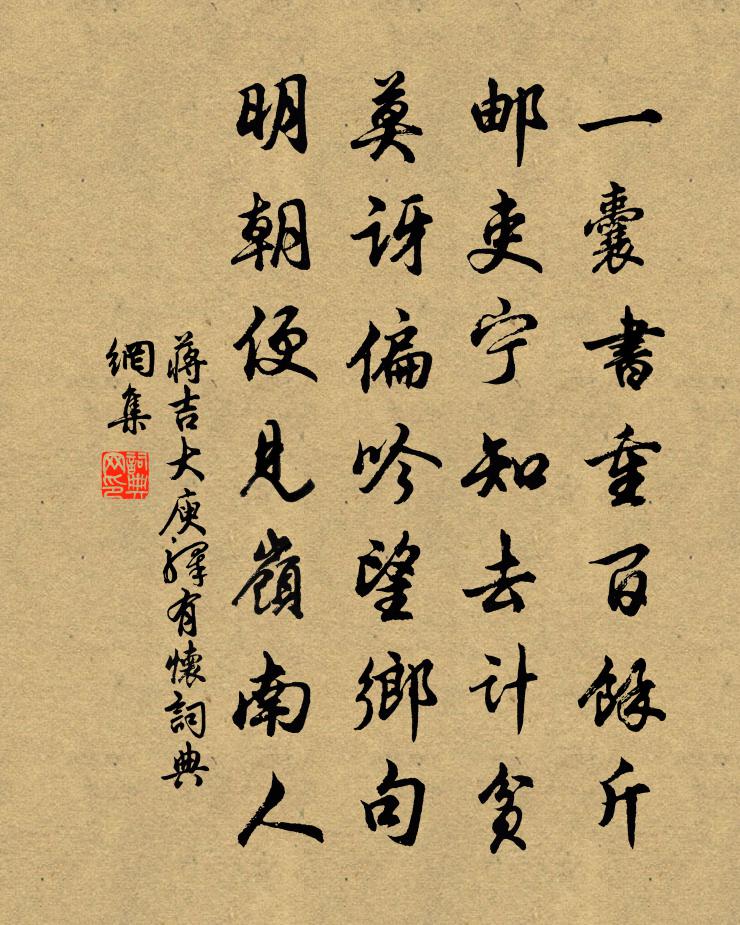 一囊書重百餘斤
邮吏宁知去计貧
莫讶偏吟望鄉句
明朝便見嶺南人
蔣吉大庾驛有懷詞典
網集
詞典
网印